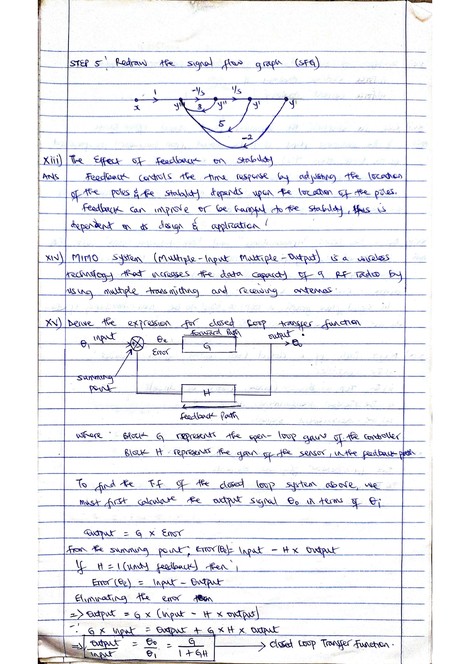 STEP 5: Redraw the signal flow graph (SFG)
1 -1/s 1/s
x y''' 3 y'' y' y
5
-2
xiii) The Effect of feedback on stability
Ans Feedback controls the time response by adjusting the location
of the poles & the stability depends upon the location of the poles.
Feedback can improve or be harmful to the stability, this is
dependent on its design & application!
xiv) MIMO system (Multiple-Input Multiple-Output) is a wireless
technology that increases the data capacity of a RF radio by
using multiple transmitting and receiving antennas.
xv) Derive the expression for closed loop transfer function
θi input θe Forward Path output θo
Error G
summing
point H
feedback path
where: Block G represents the open-loop gains of the controller
Block H represents the gain of the sensor, in the feedback path
To find the T.f of the closed loop system above, we
must first calculate the output signal θo in terms of θi
Output = G x Error
From the summing point; Error(θe) = Input - H x Output
If H = 1 (unity feedback) then;
Error (θe) = Input - Output
Eliminating the error
=> Output = G x (Input - H x output)
∵ G x Input = Output + G x H x output
=> Output/Input = θo/θi = G/1 + GH → Closed Loop Transfer Function.